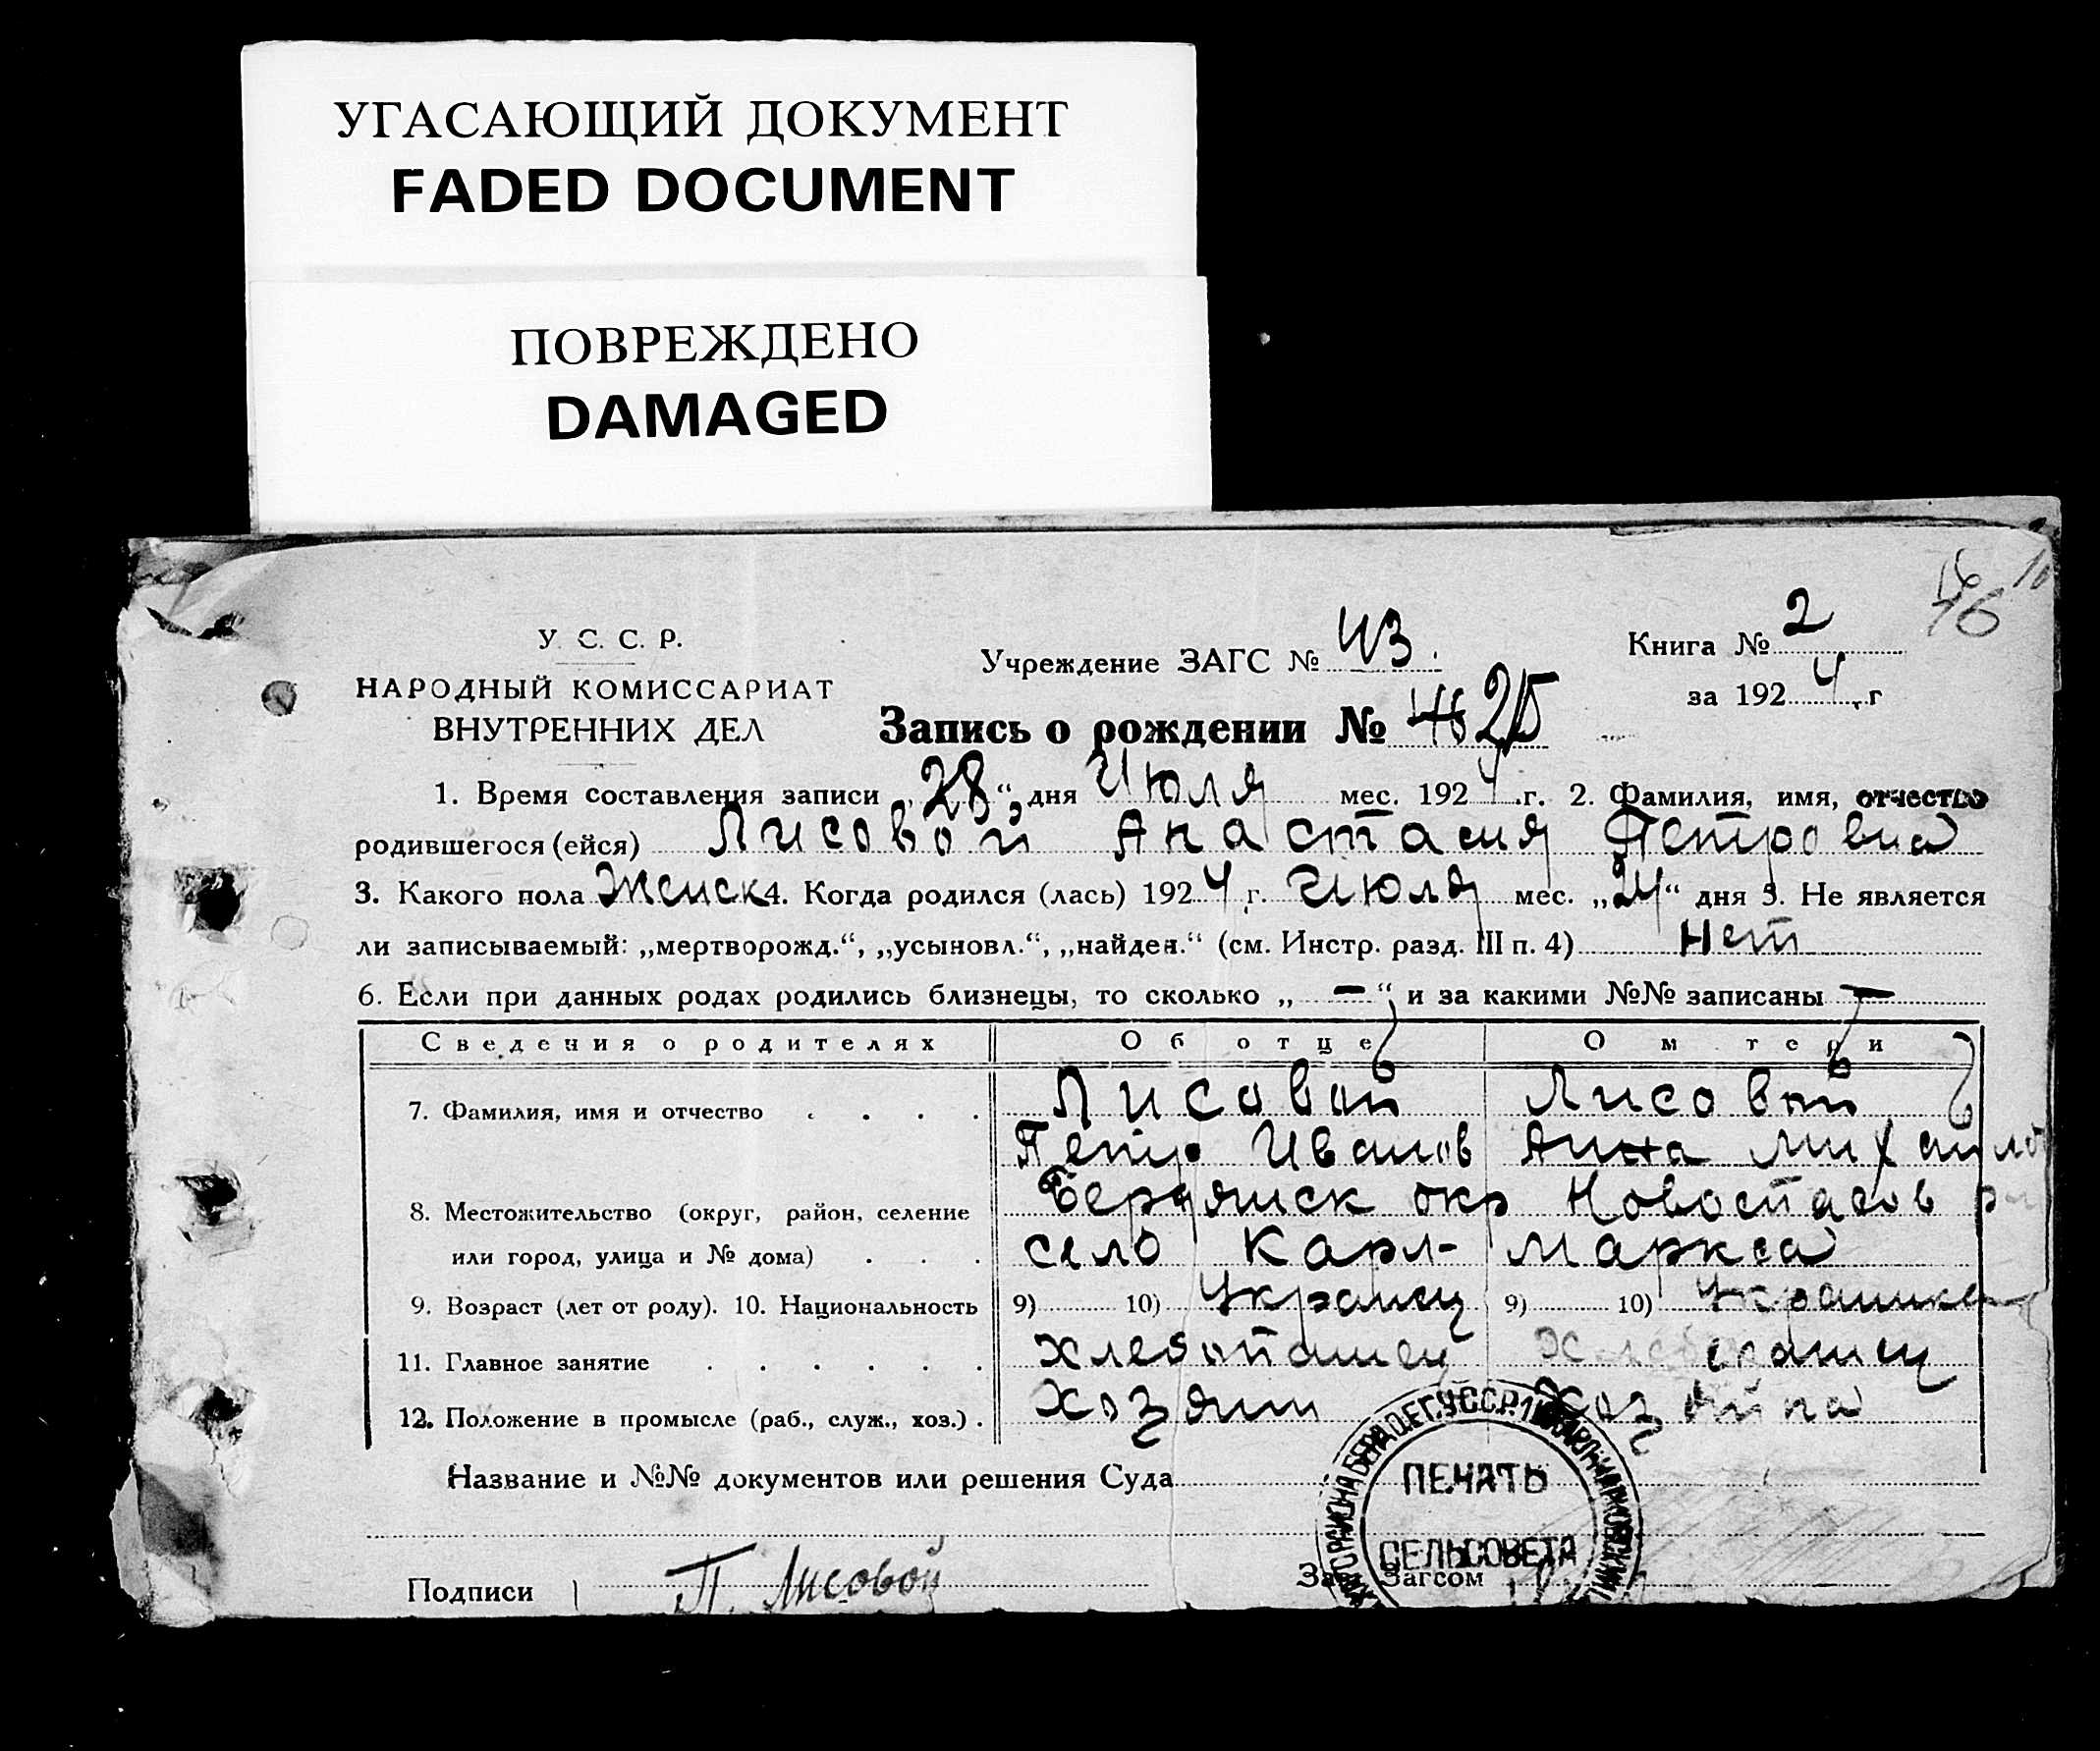 УГАСАЮЩИЙ ДОКУМЕНТ
FADED DOCUMENT
ПОВРЕЖДЕНО
DAMAGED
У. С. С. Р.
НАРОДНЫЙ КОМИССАРИАТ
ВНУТРЕННИХ ДЕЛ
Учреждение ЗАГС №
Книга № 2
за 192 4 г
Запись о рождении № 46 25
1. Время составления записи „28“ дня Июля мес. 192 4 г. 2. Фамилия, имя, отчество
родившегося (ейся) Лисовой Анастасия Петровна
3. Какого пола Женск 4. Когда родился (лась) 192 4 г. Июля мес. „24“ дня 5. Не является
ли записываемый: „мертворожд.“, „усыновл.“, „найден.“ (см. Инстр. разд. III п. 4) Нет
6. Если при данных родах родились близнецы, то сколько „ — “ и за какими №№ записаны —
Сведения о родителях Об отце О м тери
7. Фамилия, имя и отчество . . . . Лисовой Лисовой
Петр Иванов Анна Михайлов
8. Местожительство (округ, район, селение Бердянск окр Новоспасов р
или город, улица и № дома) . . . село Карл- Маркса
9. Возраст (лет от роду). 10. Национальность 9) 10) Украинец 9) 10) Украинка
11. Главное занятие . . . . . . хлебопашец хлебопашец
12. Положение в промысле (раб., служ., хоз.) . Хозяин Хозяйка
Название и №№ документов или решения Суда
ПЕЧАТЬ
СЕЛЬСОВЕТА
Подписи П. Лисовой Зав. Загсом